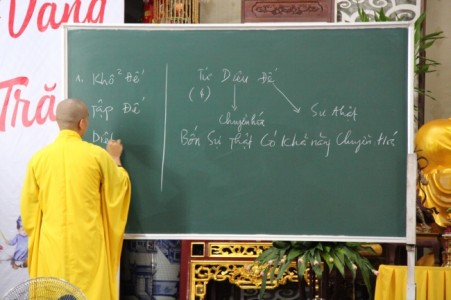 Vàng
Tră
1. Khổ Đế
Tập Đế
Diệ
Tứ Diệu Đế
(4)
Sự thật
Chuyển hóa
Bốn Sự thật Có khả năng Chuyển Hoá